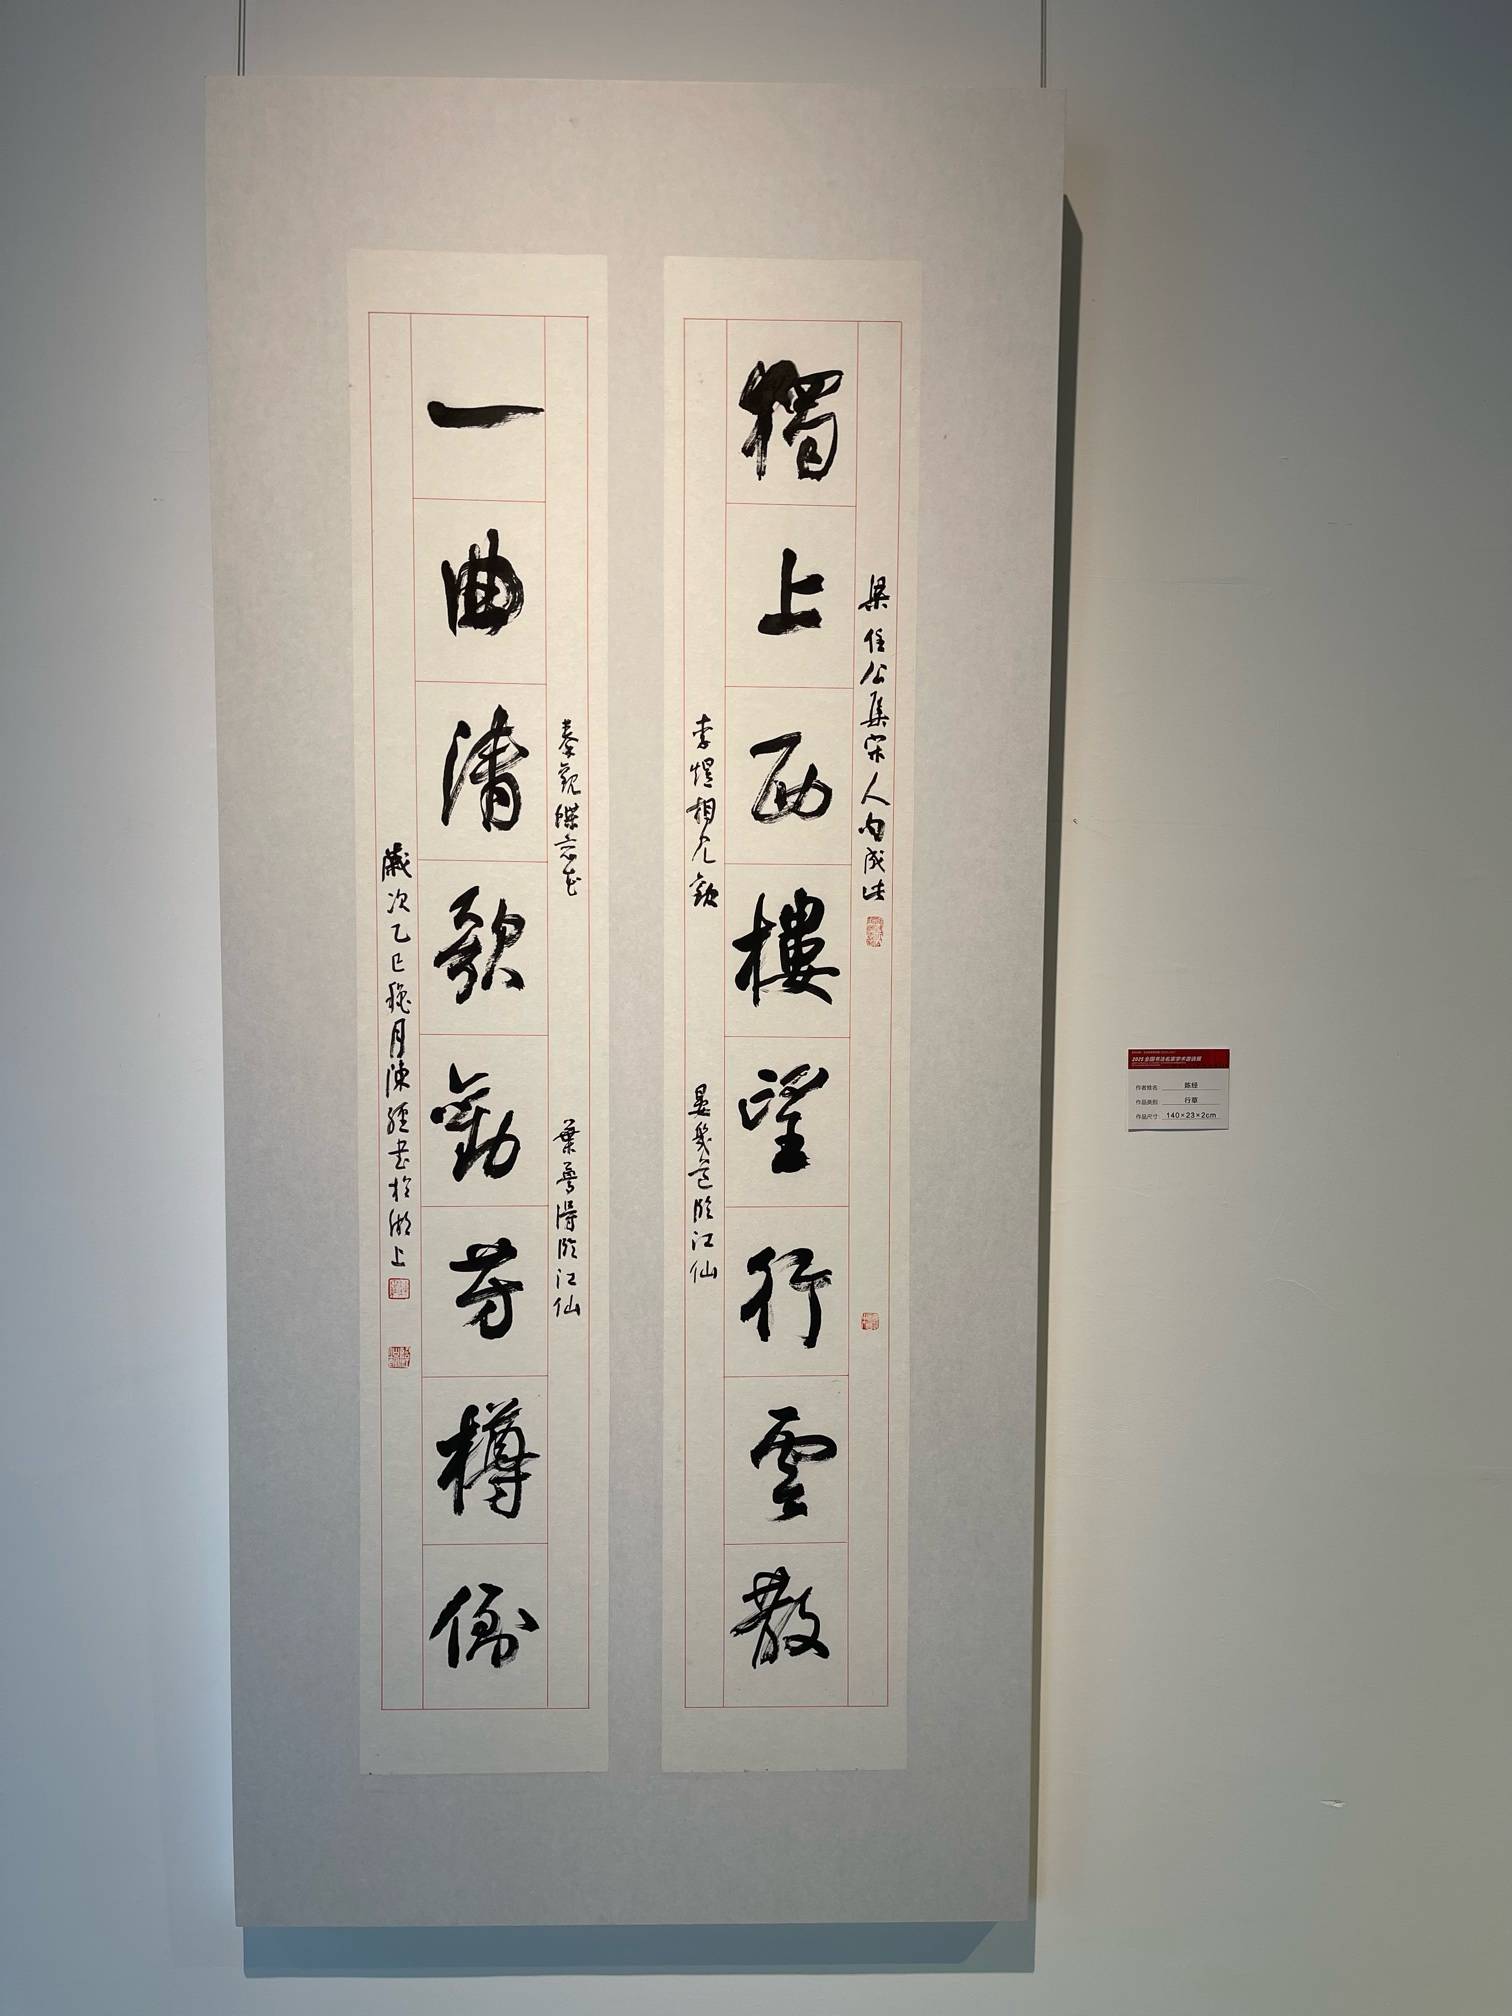 梁任公集宋人句成此
獨上西樓望行雲散
李煜相見歡
晏幾道臨江仙
秦觀蝶恋花
葉夢得臨江仙
一曲清歌勸芳樽倒
歲次乙巳穐月陳經書於湖上
2025 全国书法名家学术邀请展
作者姓名: 陈经
作品类别: 行草
作品尺寸: 140×23×2cm